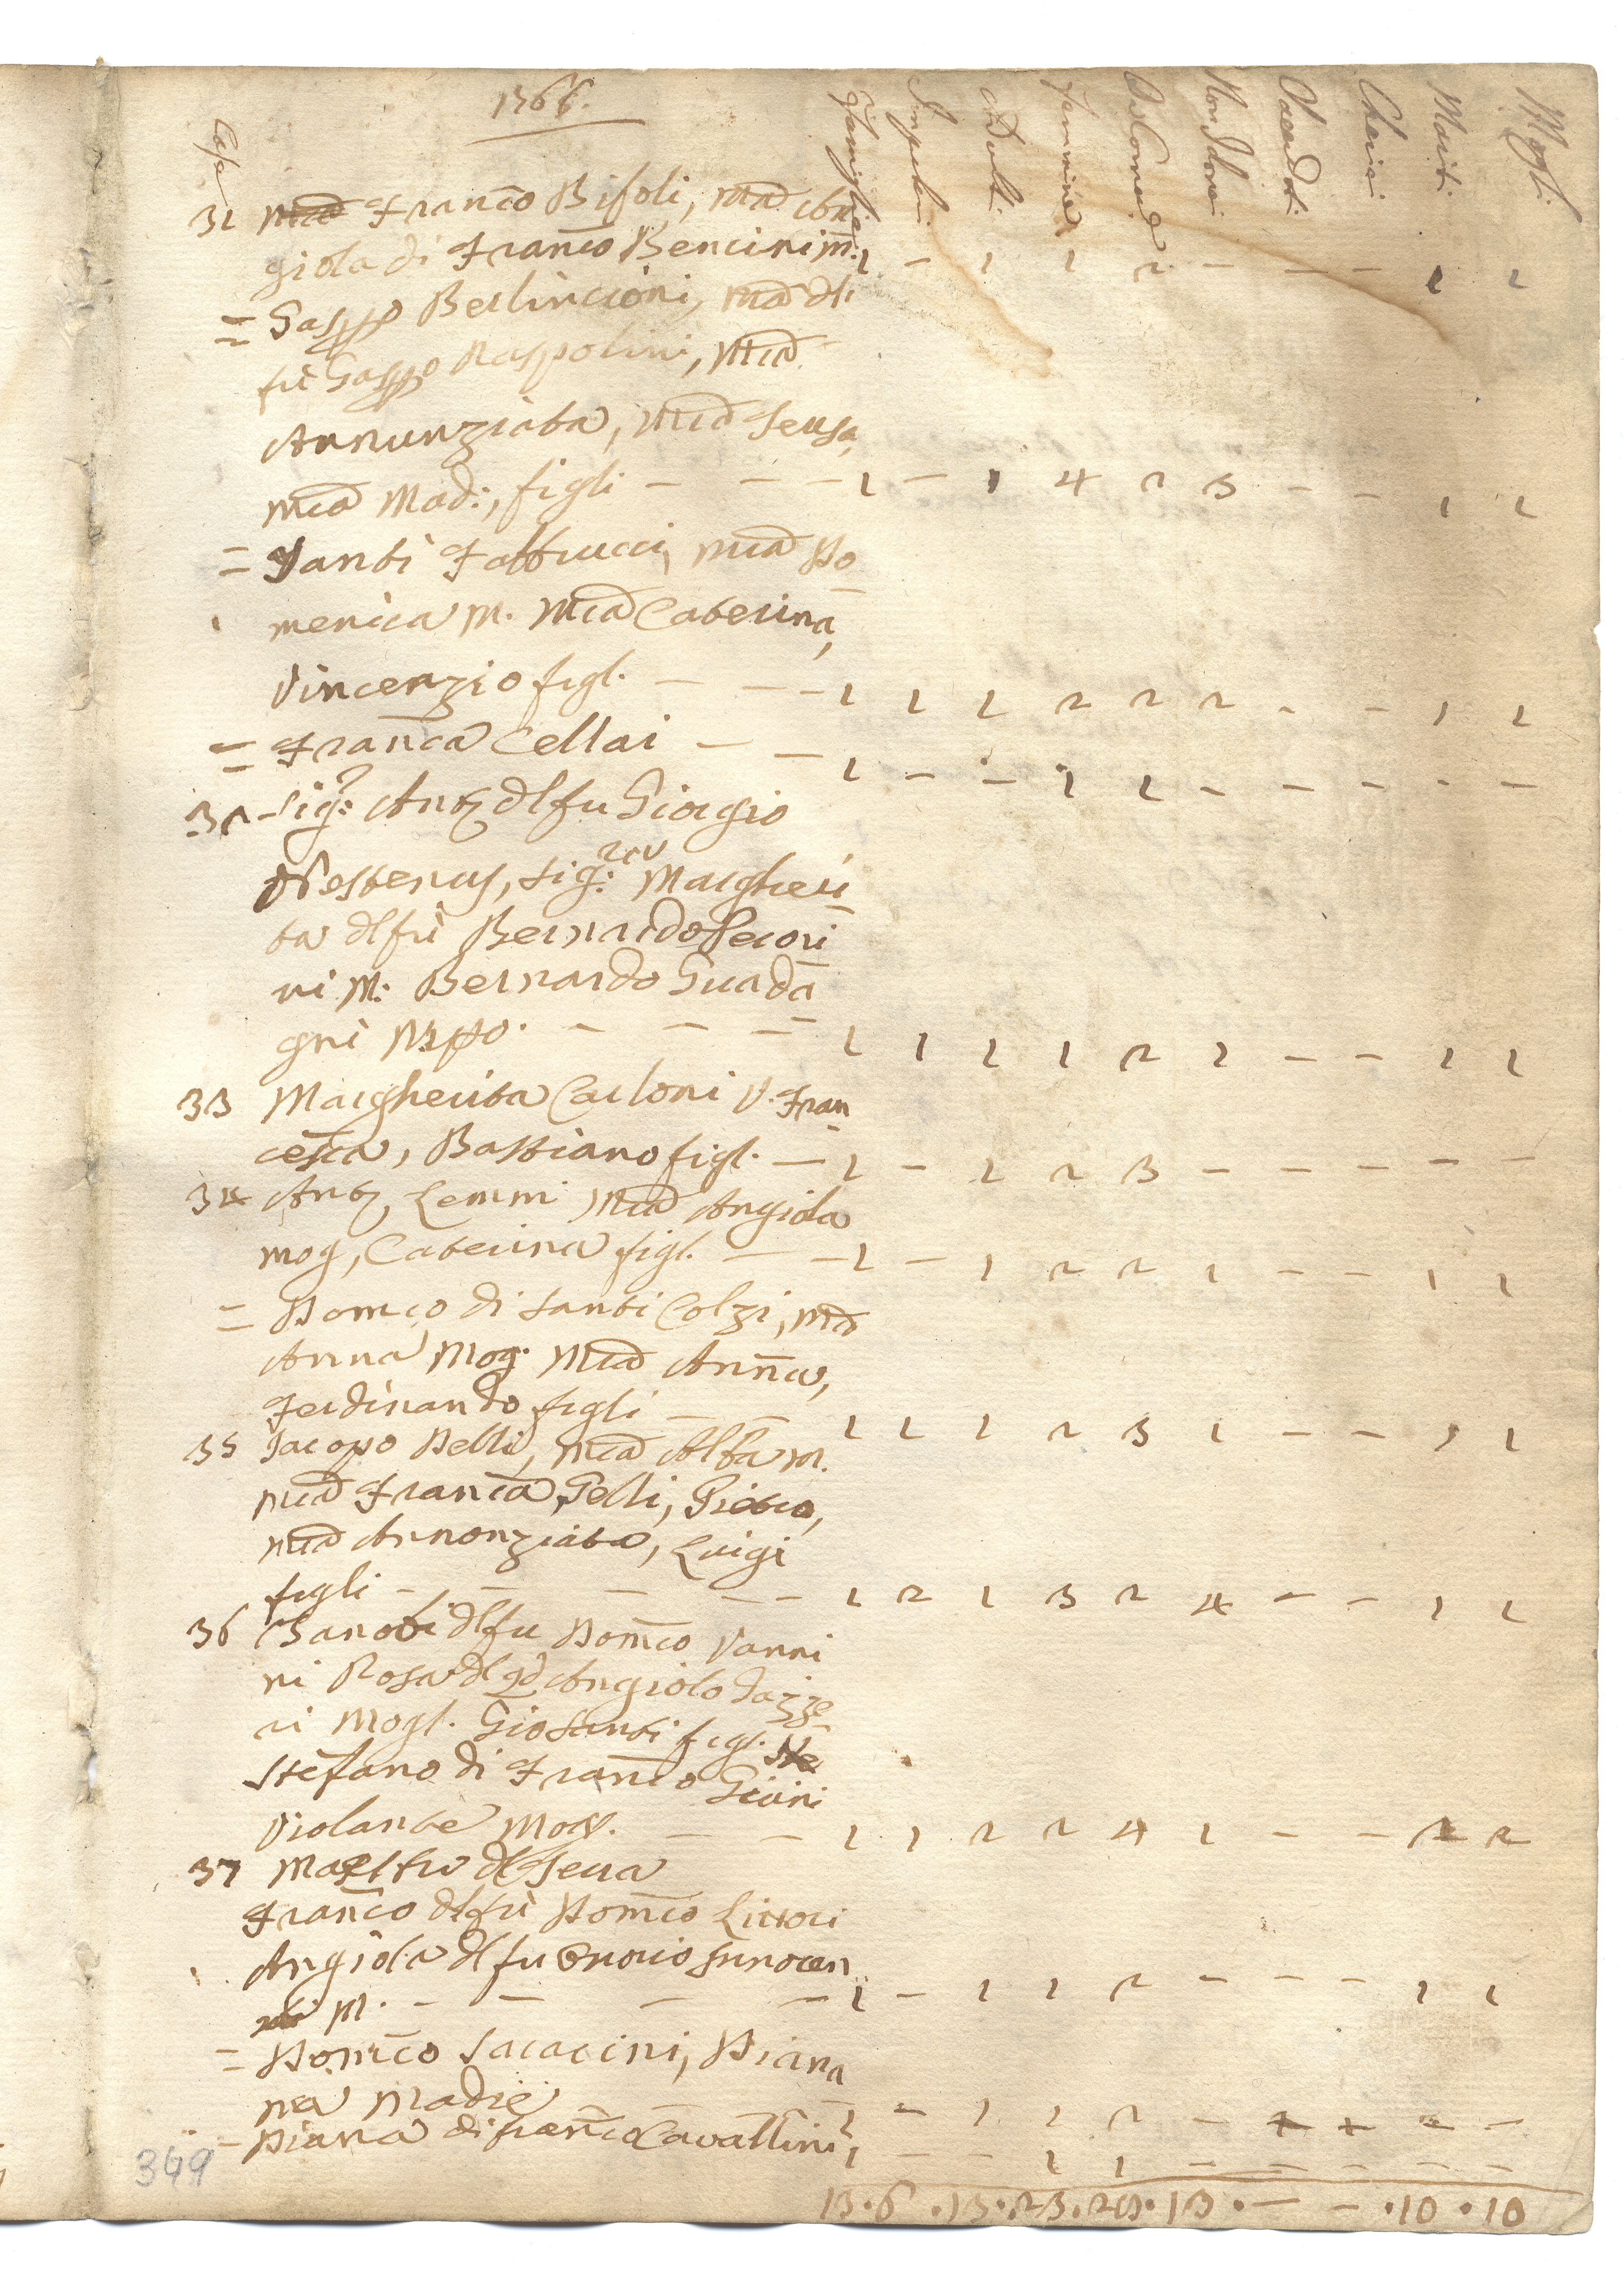 1766.
Case Famiglie Impuberi Adulti Femmine Da Comunione Non Idonei Sacerdoti Cherici Mariti Mogli
31 Franco Bifoli, Ma An
giola di Franco Bencini m: 1 - 1 1 2 - - - 1 1
= Gasppo Berlincioni, Ma dl
fù Gasppo Raspolini, Mia
Annunziata, Mia Teresa,
Mia Mad:, figli - - - 1 - 1 4 2 3 - - 1 1
= Santi Fattucci, Mia Do
menica M. Mia Caterina,
Vincenzio figl. - - - 1 1 1 2 2 2 - - 1 1
= Franca Cellai - - 1 - - 1 1 - - - - -
32 Sig: Anto dl fu Giorgio
Nestenus, Sig:ra Margheri
ta dl fù Bernardo Pecori
ni M: Bernardo Guada
gni Nipo. - - - 1 1 1 1 2 2 - - 1 1
33 Margherita Carloni V. Fran
cesca, Bastiano figl. - 1 - 1 2 3 - - - - -
34 Anto Lemmi Mia Angiola
mog, Caterina figl. - - 1 - 1 2 2 1 - - 1 1
= Domco di Santi Colzi, Ma
Anna Mog. Mia Anna,
Ferdinando figli - - 1 1 1 2 3 1 - - 1 1
35 Jacopo Belli, Mia Alba m.
Mia Franca, Pietro,
Mia Annonziata, Luigi
figli - - - - - 1 2 1 3 2 4 - - 1 1
36 Zanobi dl fu Domco Vanni
ni Rosa dl qd Angiolo
ri Mogl. Gio Santi figl.
Stefano di Franco
Violante Mog. - - 1 1 2 2 4 1 - - 2 2
37
Franco dl fù Domco
Angiola dl fu Innocen
M. - - - - 1 - 1 1 2 - - - 1 1
= Domco Saccocini, Diana
Madre - - 1 - 1 1 2 - - - - -
= Diana di Franco Cavallini 1 - - 1 1 - - - - -
13 . 6 . 13 . 23 . 28 . 13 . - - . 10 . 10
349